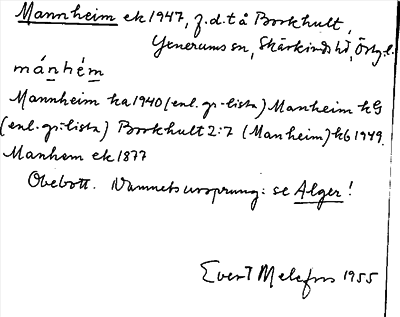 Mannheim ek 1947, f.d.t å Borkhult,
Yxnerums sn, Skärkinds hd, Östg.l.
mánhém
Mannheim ha 1940 (enl. gr-lista) Manheim hG
(enl. gr-lista) Borkhult 2:7 (Manheim) hG 1949.
Manhem ek 1877
Obebott. Namnets ursprung: se Alger!
Evert Melefors 1955